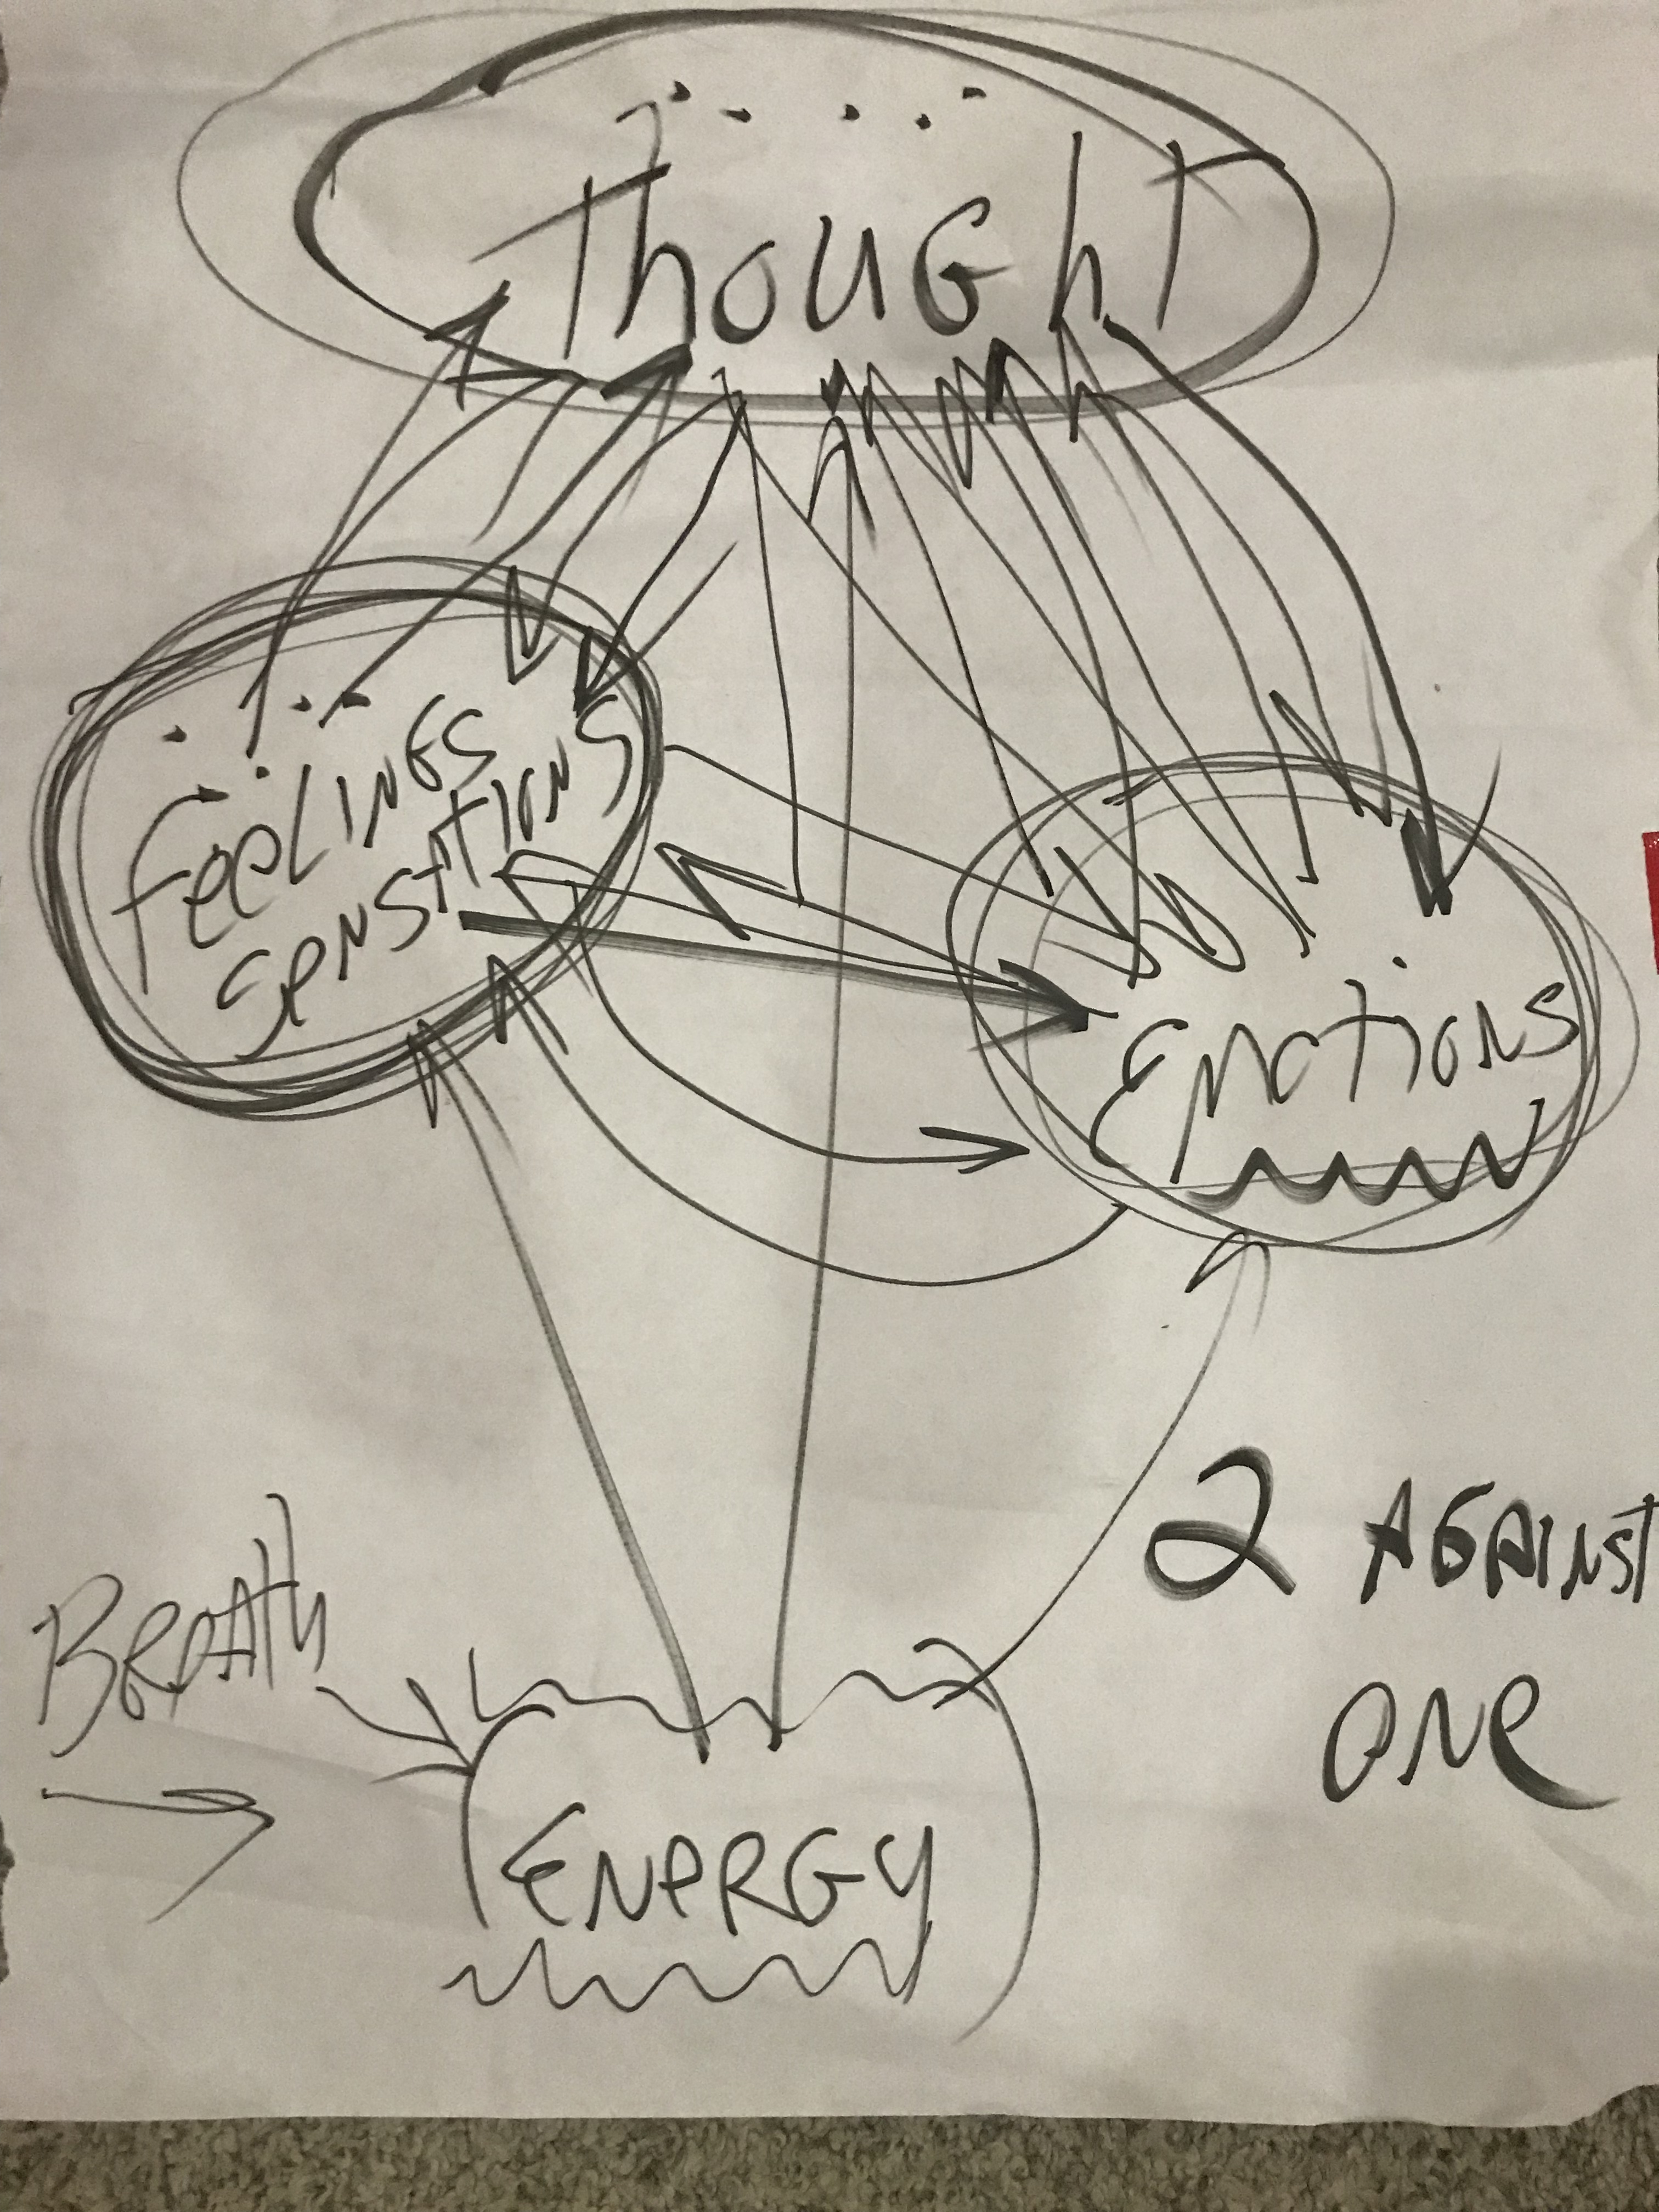 Thought
Feelings
Senstations
Emotions
2 Against
one
Breath
Energy